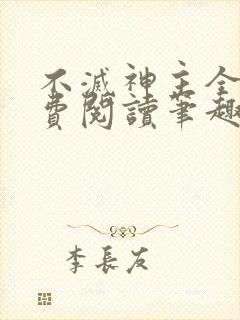 不滅神主全
費閱讀筆趣
李長友